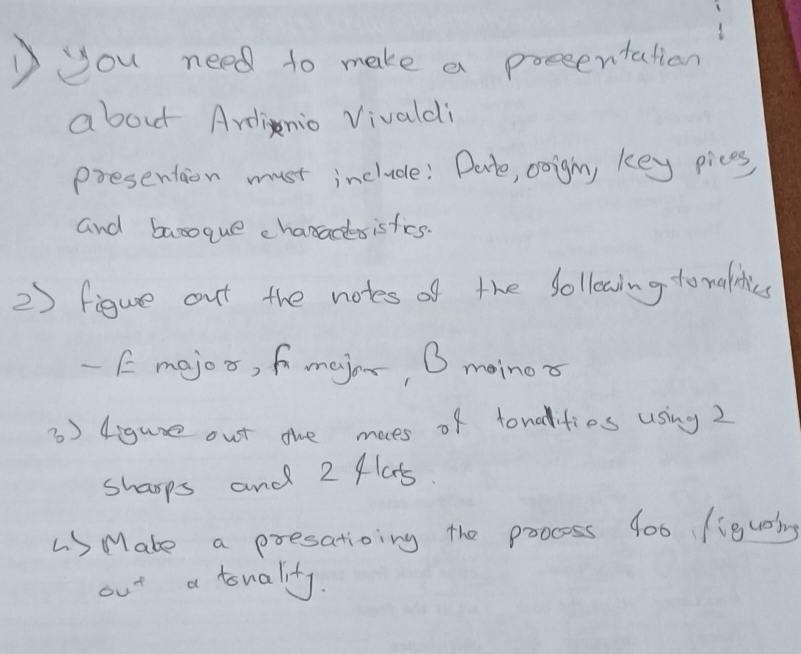 1) You need to make a preeentation
about Ardionio Vivaldi
presention must include: Date, origin, key pices,
and baroque characteristics.
2) figure out the notes of the following tonalities
- E major, F major, B moinor
3) figure out the maes of tonalities using 2
sharps and 2 flats.
4) Make a presatioing the process for figuring
out a tonality.